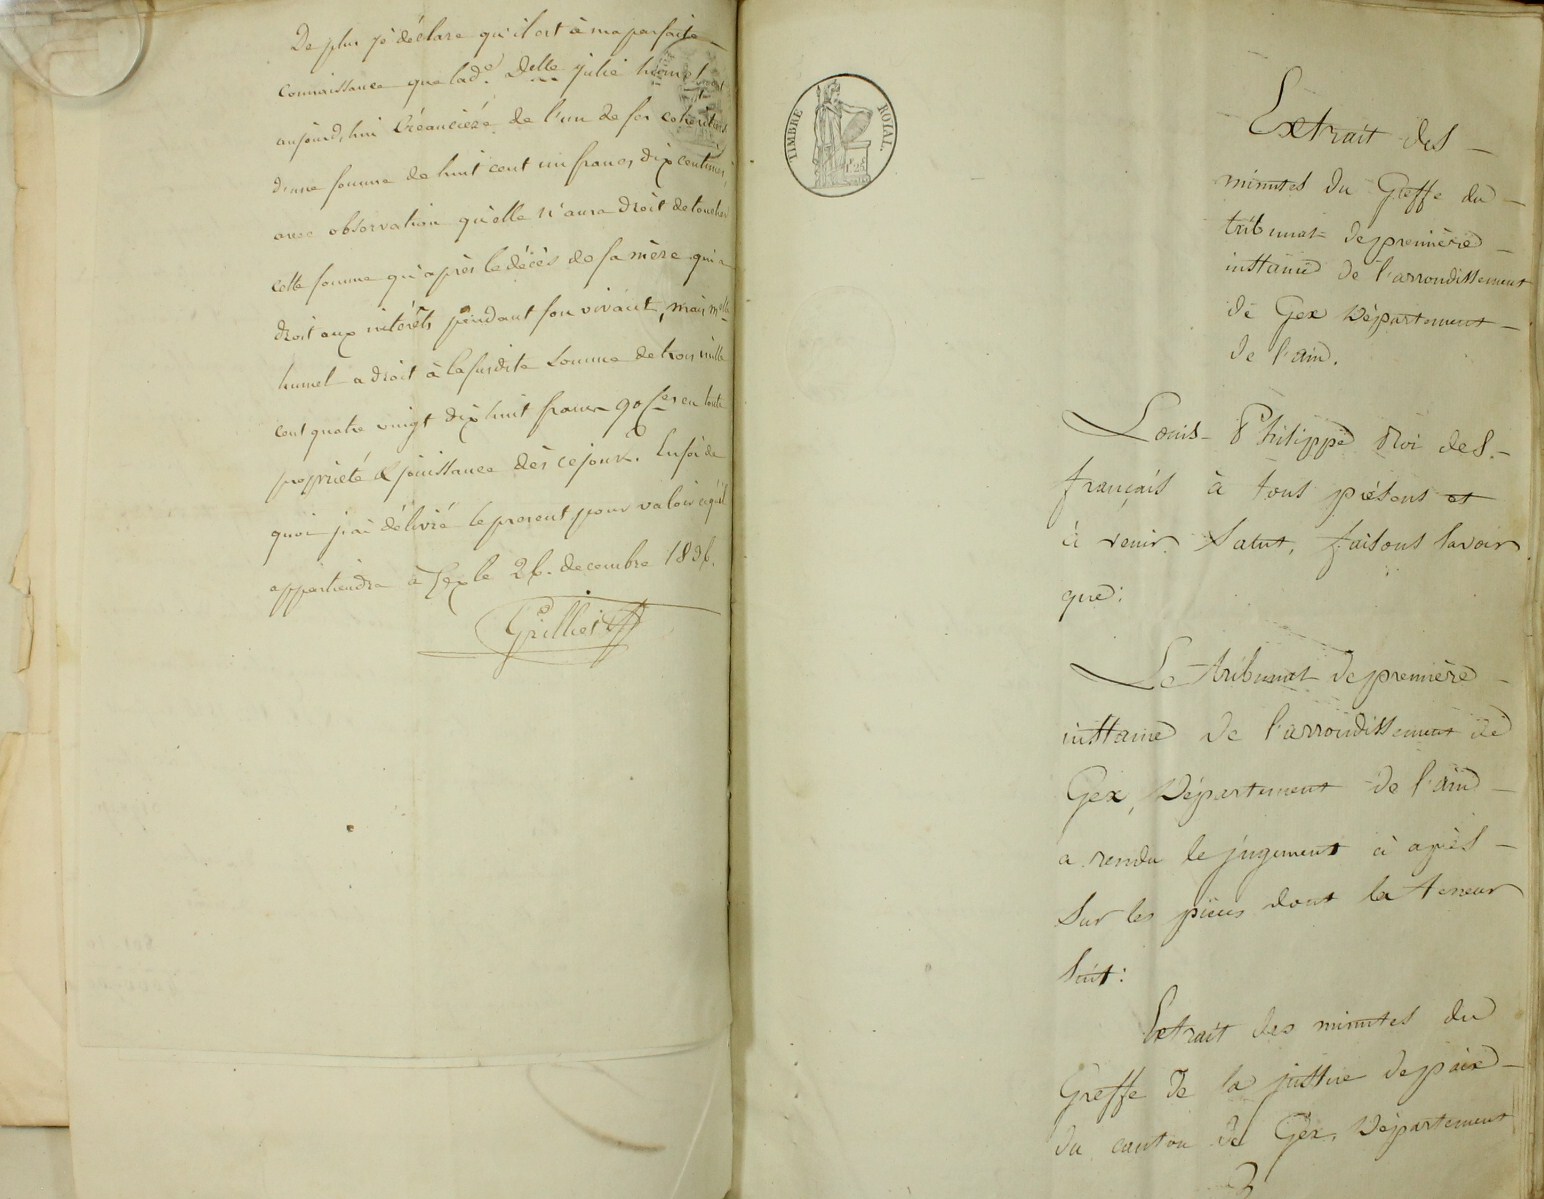 De plus je déclare qu'il est à ma parfaite
connaissance que lad.e Delle julie humel
aujourd'hui Créancière de l'un de ses cohéritiers
d'une somme de huit cent un francs dix centimes,
avec observation qu'elle n'aura droit de toucher
cette somme qu'après le décès de sa mère qui a
droit aux intérêts pendant son vivant, mais Melle
humel a droit à la susdite somme de trois mille
cent quatre vingt dix huit francs 90 ces en toute
propriété & jouissance dès ce jour. En foi de
quoi j'ai délivré le present pour valoir ce qu'il
appartiendra à Gex le 26. decembre 1836.
Grilliet
TIMBRE ROIAL.
1f 25
Extrait des
minutes du Greffe du
tribunal de première
instance de l'arrondissement
de Gex Département
de l'ain.
Louis-Philippe Roi des
français à tous présens et
à venir Salut, faisons savoir
que:
Le tribunal de première
instance de l'arrondissement de
Gex, Département de l'ain
a rendu le jugement ci après
sur les pièces dont la teneur
suit:
Extrait des minutes du
Greffe de la justice de paix
du canton de Gex, Département